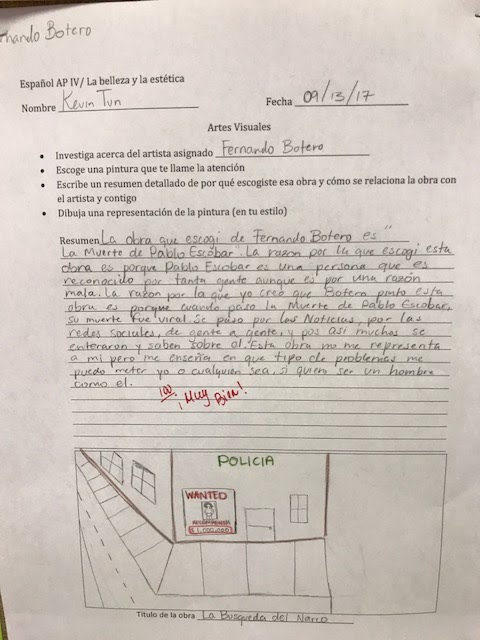 nando Botero
Español AP IV/ La belleza y la estética
Nombre Kevin Tun Fecha 09/13/17
Artes Visuales
• Investiga acerca del artista asignado Fernando Botero
• Escoge una pintura que te llame la atención
• Escribe un resumen detallado de por qué escogiste esa obra y cómo se relaciona la obra con
el artista y contigo
• Dibuja una representación de la pintura (en tu estilo)
Resumen La obra que escogi de Fernando Botero es "
La Muerte de Pablo Escobar". La razon por la que escogi esta
obra es porque Pablo Escobar es una persona que es
reconocido por tanta gente aunque es por una razón
mala. La razon por la que yo creo que Botero pinto esta
obra es porque cuando paso la Muerte de Pablo Escobar,
su muerte fue viral. Se paso por las Noticias, por las
redes sociales, de gente a gente, y pos asi muchos se
enteraron y saben sobre el. Esta obra no me representa
a mi pero me enseña en que tipo de problemas me
puedo meter yo o cualquien sea, si quiero ser un hombre
como el.
100
¡Muy Bien!
POLICIA
WANTED
RECOMPENSA
$1,000,000
Titulo de la obra La Busqueda del Narco